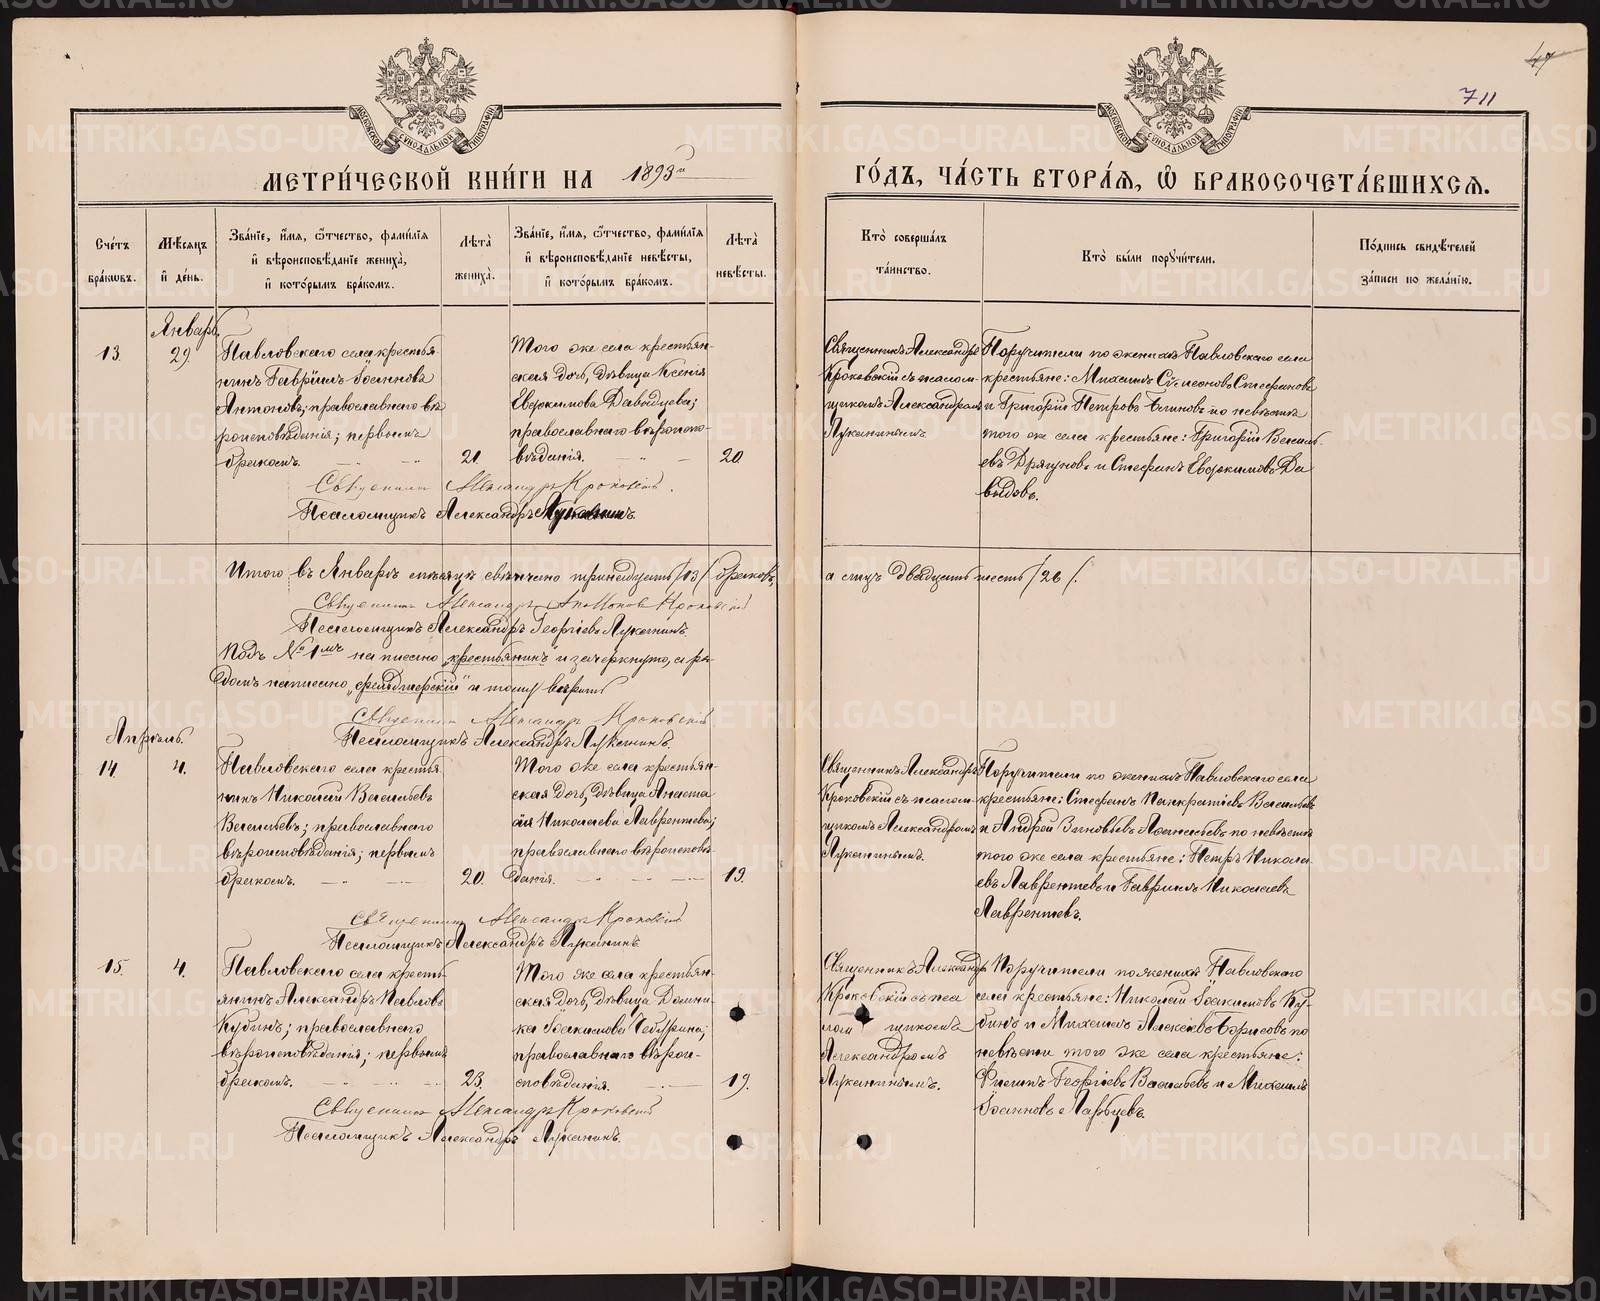 47
711
МЕТРИ́ЧЕСКОЙ КНИ́ГИ НА 1893й
ГО́ДЪ, ЧА́СТЬ ВТОРА́Я, Ѡ БРАКОСОЧЕТА́ВШИХСЯ.
Сче́тъ бра́кѡвъ.
Мѣ́сяцъ и҆ де́нь.
Зва́нїе, и҆́мя, ѻ҆́тчество, фами́лїя
и҆ вѣроисповѣ́данїе жениха̀,
и҆ кото́рымъ бра́комъ.
Лѣ́та
жениха̀.
Зва́нїе, и҆́мя, ѻ҆́тчество, фами́лїя
и҆ вѣроисповѣ́данїе невѣ́сты,
и҆ кото́рымъ бра́комъ.
Лѣ́та
невѣ́сты.
Кто̀ соверша́лъ
та́инство.
Кто̀ бы́ли поручи́тели.
По́дпись свидѣ́телей
за́писи по жела́нїю.
Январь.
13.
29.
Павловскаго села крестья-
нинъ Гавріилъ Іоанновъ
Антоновъ; православнаго вѣ
роисповѣданія; первымъ
бракомъ.
21.
Того же села крестьян-
ская дочь, дѣвица Ксенія
Евдокимова Давыдцева;
православнаго вѣроиспо-
вѣданія.
20.
Священникъ Александръ
Кроковскій съ псалом-
щикомъ Александромъ
Луканинымъ.
Поручители по женихѣ Павловскаго села
крестьяне: Михаилъ Сѵмеоновъ Стефановъ
и Григорій Петровъ Блиновъ по невѣстѣ
того же села крестьяне: Григорій Василь-
евъ Дрягуновъ и Стефанъ Евдокимовъ Да
выдовъ.
Священникъ Александръ Кроковскій.
Псаломщикъ Александръ Луканинъ.
Итого въ Январѣ мѣсяцѣ свѣнчано тринадцать /13/ браковъ,
а лицъ двадцать шесть /26/.
Священникъ Александръ Кроковскій
Псаломщикъ Александръ Георгіевъ Луканинъ.
Подъ № 1мъ написано „крестьянинъ" и зачеркнуто, а ря-
домъ написано „фельдшерскій" и тому вѣрить
Священникъ Александръ Кроковскій
Псаломщикъ Александръ Луканинъ.
Апрѣль.
14.
4.
Павловскаго села крестья
нинъ Николай Васильевъ
Васильевъ; православнаго
вѣроисповѣданія; первымъ
бракомъ.
20.
Того же села крестьян-
ская дочь, дѣвица Анаста
сія Николаева Лаврентьева;
православнаго вѣроисповѣ-
данія.
19.
Священникъ Александръ
Кроковскій съ псалом-
щикомъ Александромъ
Луканинымъ.
Поручители по женихѣ Павловскаго села
крестьяне: Стефанъ Панкратіевъ Васильевъ
и Андрей Зиновьевъ Аѳанасьевъ по невѣстѣ
того же села крестьяне: Петръ Никола-
евъ Лаврентьевъ и Гавріилъ Николаевъ
Лаврентьевъ.
Священникъ Александръ Кроковскій
Псаломщикъ Александръ Луканинъ.
15.
4.
Павловскаго села кресть-
янинъ Александръ Павловъ
Кубинъ; православнаго
вѣроисповѣданія; первымъ
бракомъ.
23.
Того же села крестьян-
ская дочь, дѣвица Домни-
ка Іоакимова Чебурина;
православнаго вѣрои-
сповѣданія.
19.
Священникъ Александръ
Кроковскій съ пса
лом щикомъ
Александромъ
Луканинымъ.
Поручители по женихѣ Павловскаго
села крестьяне: Николай Іоакимовъ Ку-
бинъ и Михаилъ Алексѣевъ Борисовъ по
невѣсти того же села крестьяне:
Филипъ Георгіевъ Васильевъ и Михаилъ
Іоанновъ Ларбуцевъ.
Священникъ Александръ Кроковскій
Псаломщикъ Александръ Луканинъ.
METRIKI.GASO-URAL.RU